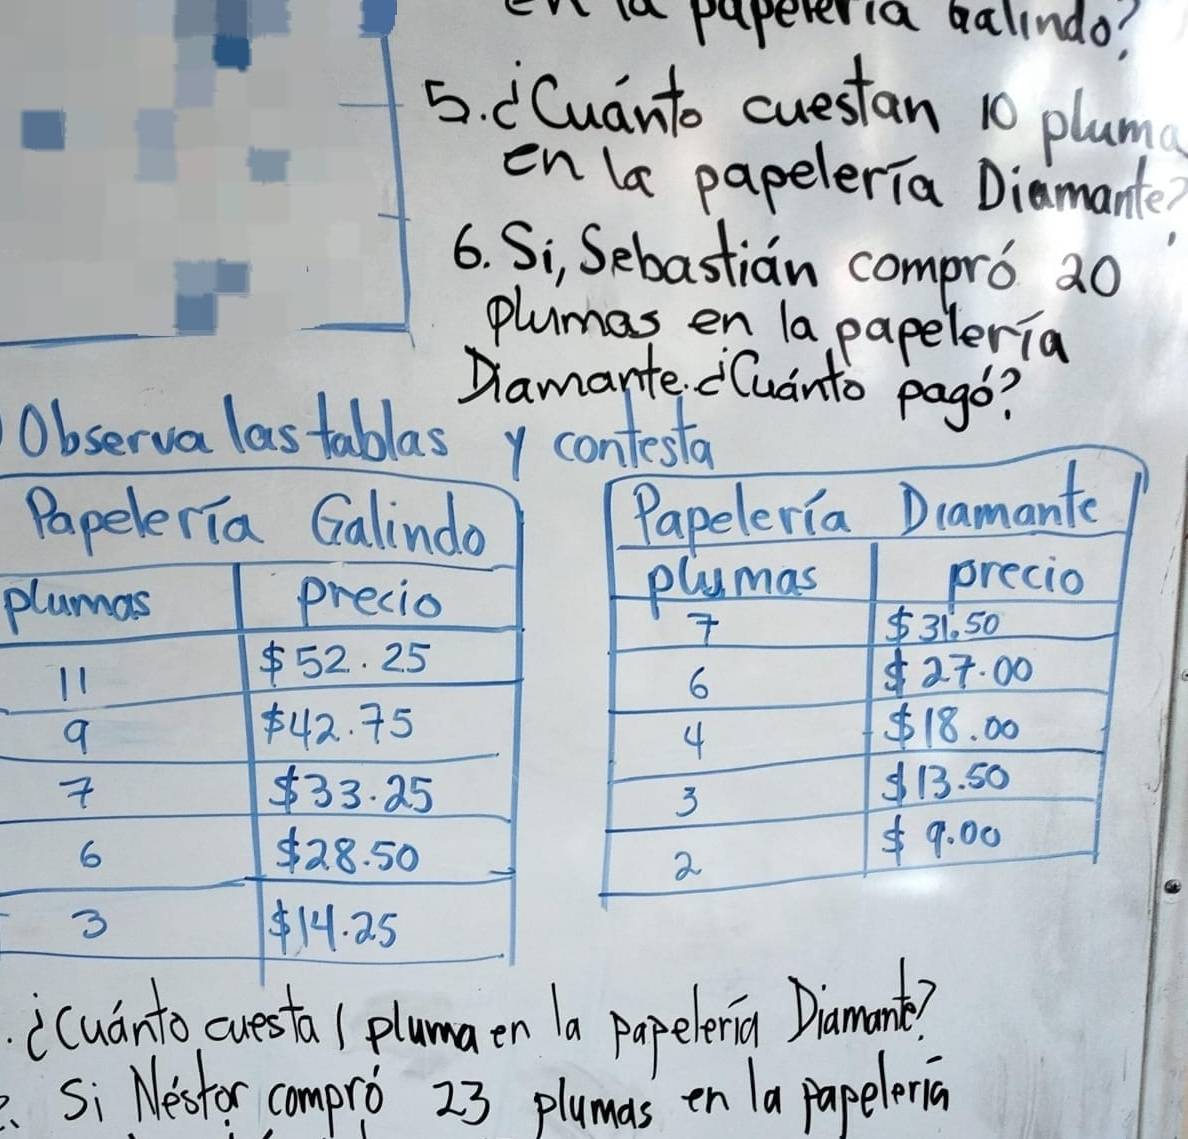 en la papelería Galindo?
5. ¿Cuánto cuestan 10 pluma
en la papelería Diamante?
6. Si, Sebastián compró 20
plumas en la papelería
Diamante. ¿Cuánto pagó?
Observa las tablas y contesta
Papelería Galindo
plumas precio
11 $52.25
9 $42.75
7 $33.25
6 $28.50
3 $14.25
Papelería Diamante
plumas precio
7 $31.50
6 $27.00
4 $18.00
3 $13.50
2 $9.00
. ¿Cuánto cuesta 1 pluma en la papelería Diamante?
2. Si Néstor compró 23 plumas en la papelería